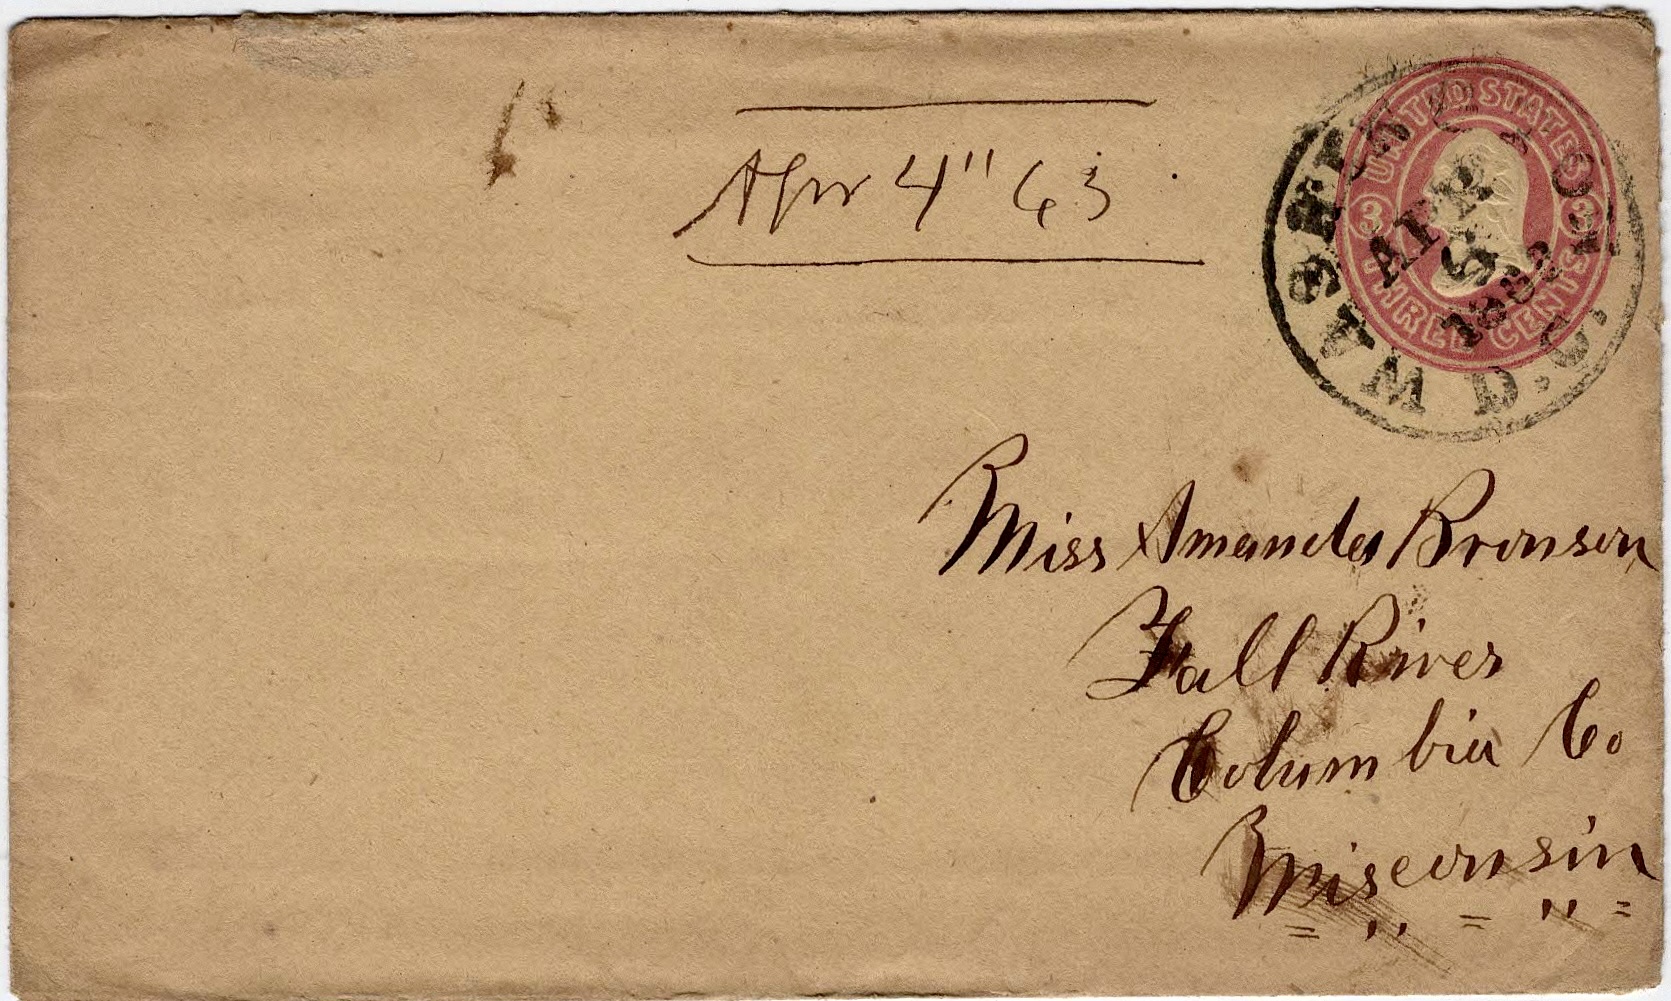 Apr 4" 63
UNITED STATES
3 3
THREE CENTS
WASHINGTON
APR
5
1863
D.C.
Miss Amanda Bronson
Fall River
Columbia Co
Wisconsin